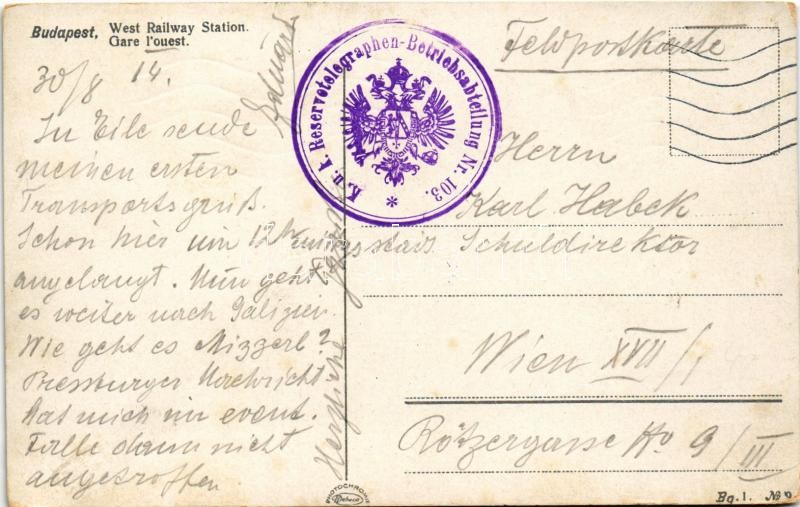 Budapest, West Railway Station.
Gare l'ouest.
30/8 14.
In Eile sende
meinen ersten
Transportsgruß.
Schon hier um 12h mittags
angelangt. Nun geht
es weiter nach Galizien.
Wie geht es Mizzerl?
Pressburger Nachricht
hat mich im event.
Falle dann nicht
angetroffen
Herzliche
Eduard
K. u. k. Reservetelegraphen-Betriebsabteilung Nr. 103.
Feldpostkarte
Herrn
Karl Habek
Schuldirektor
Wien XVII/1
Rötzergasse No 9/III
PHOTOCHROMIE
Bg. 1. № 9